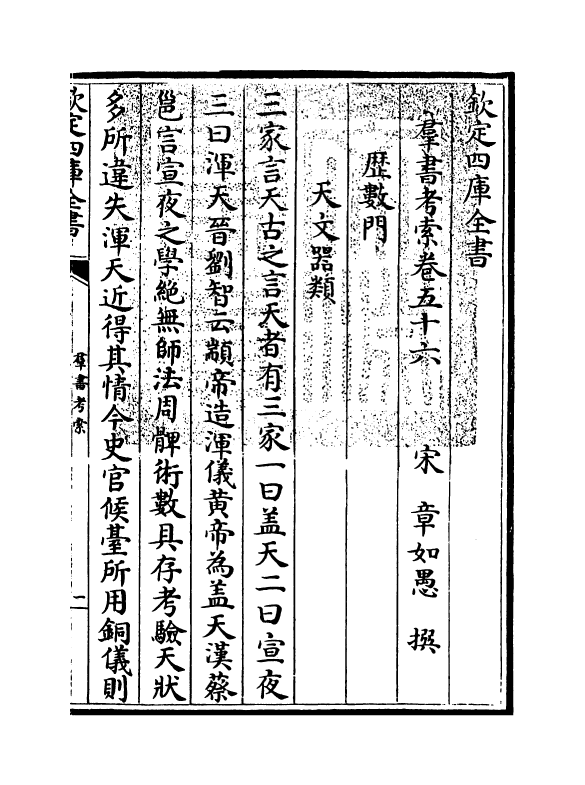 欽定四庫全書
羣書考索卷五十六　宋　章如愚　撰
歴數門
天文器類
三家言天古之言天者有三家一曰盖天二曰宣夜
三曰渾天晉劉智云顓帝造渾儀黄帝為盖天漢蔡
邕言宣夜之學絶無師法周髀術數具存考驗天狀
多所違失渾天近得其情今史官候臺所用銅儀則
欽定四庫全書
羣書考索